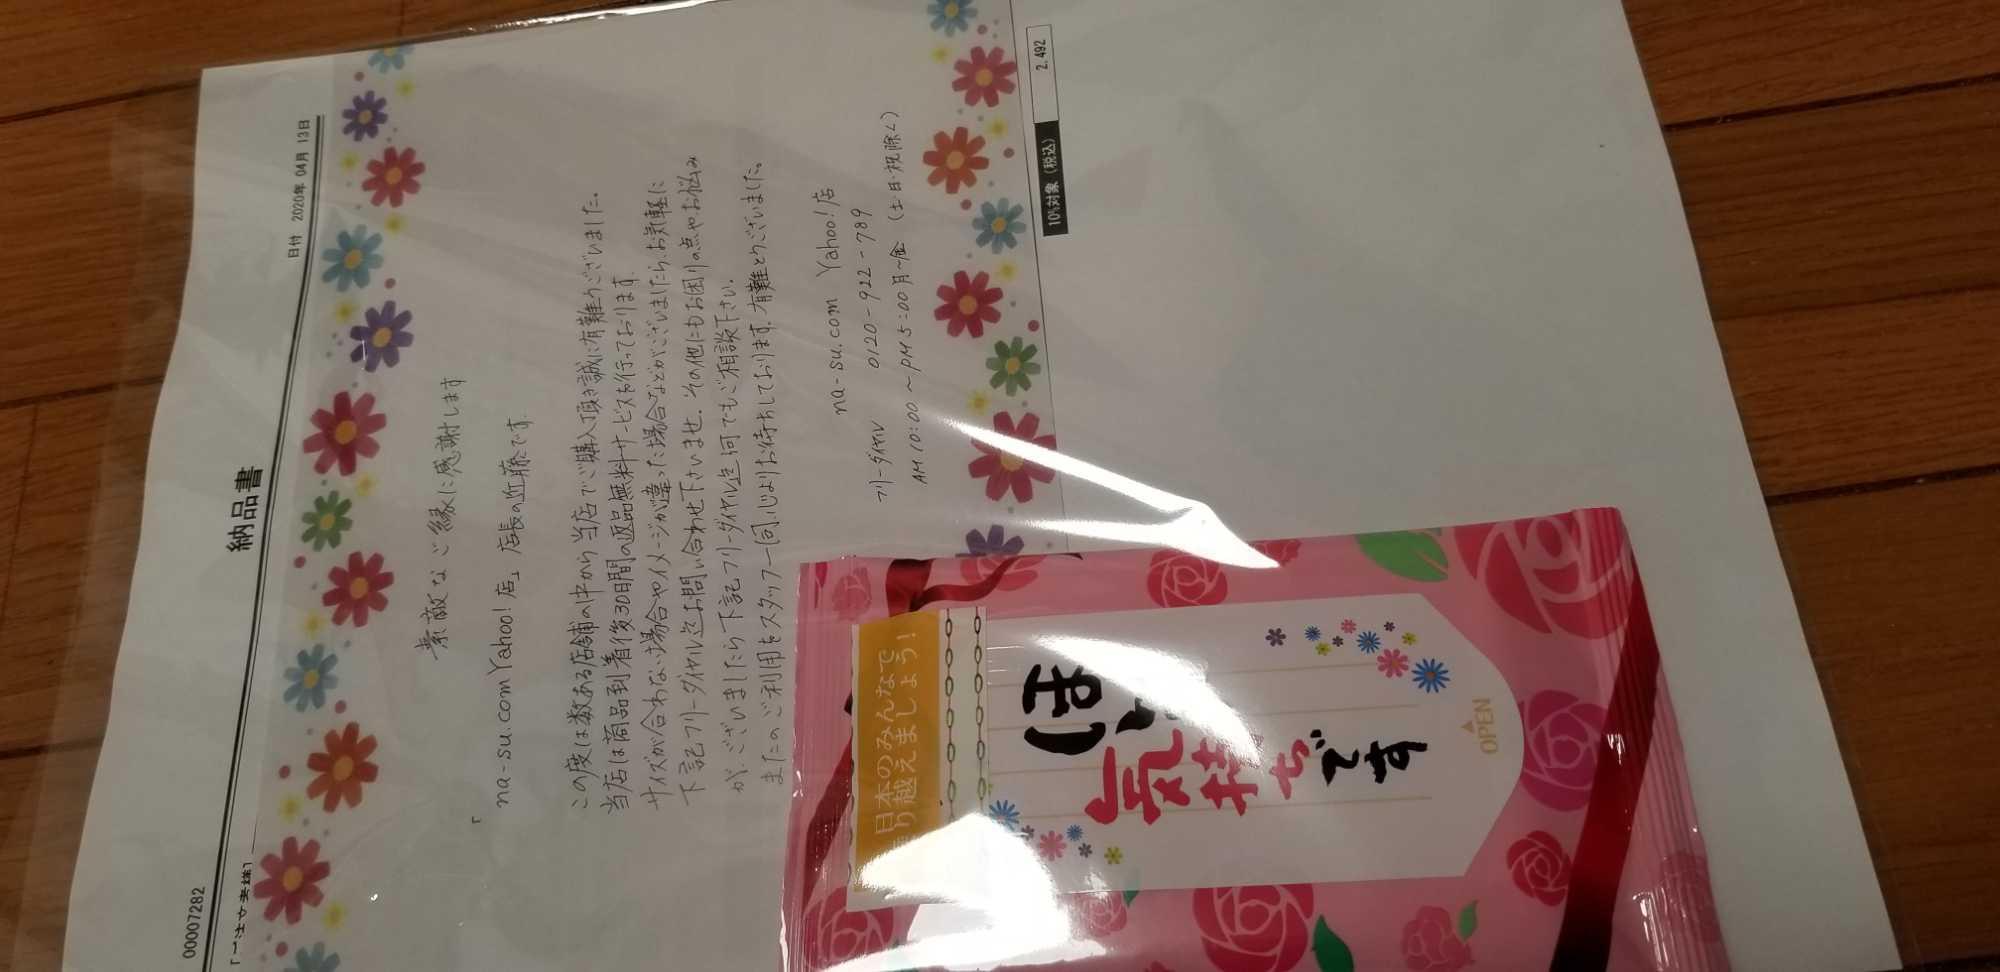 納品書
日付 2020年 04月 13日
00007282
素敵なご縁に感謝します
「na-su.com Yahoo!店」店長の近藤です。
この度は数ある店舗の中から当店でご購入頂き誠に有難うございました。
当店は商品到着後30日間の返品無料サービスを行っております。
サイズが合わない場合やイメージが違った場合などがございましたら、お気軽に
下記フリーダイヤル迄お問い合わせ下さいませ。その他にもお困りの点やお悩み
が、ございましたら下記フリーダイヤル迄何でもご相談下さい。
またのご利用をスタッフ一同、心よりお待ちしております。有難とうございました。
na-su.com Yahoo!店
フリーダイヤル 0120-922-789
AM 10:00〜PM 5:00 月〜金 (土・日・祝除く)
10%対象(税込) 2,492
日本のみんなで
り越えましょう!
ほ
気持ちです
OPEN